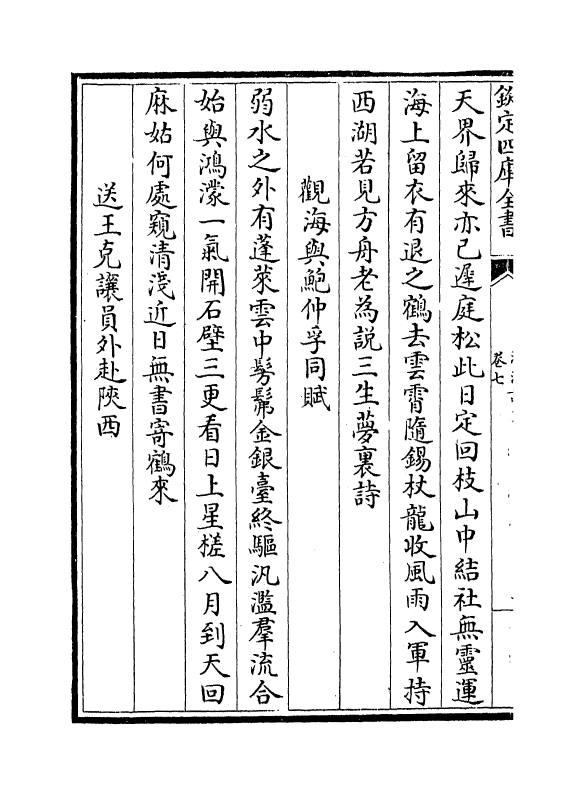 欽定四庫全書
卷七
天界歸來亦已遲庭松此日定回枝山中結社無靈運
海上留衣有退之鶴去雲霄隨錫杖龍收風雨入軍持
西湖若見方舟老為説三生夢裏詩
觀海與鮑仲孚同賦
弱水之外有蓬萊雲中髣髴金銀臺終驅汎濫羣流合
始與鴻濛一氣開石壁三更看日上星槎八月到天回
麻姑何處窺清淺近日無書寄鶴來
送王克讓員外赴陜西